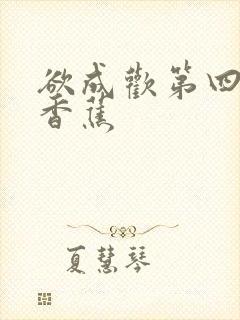 欲成歡第四
香蕉
夏慧琴